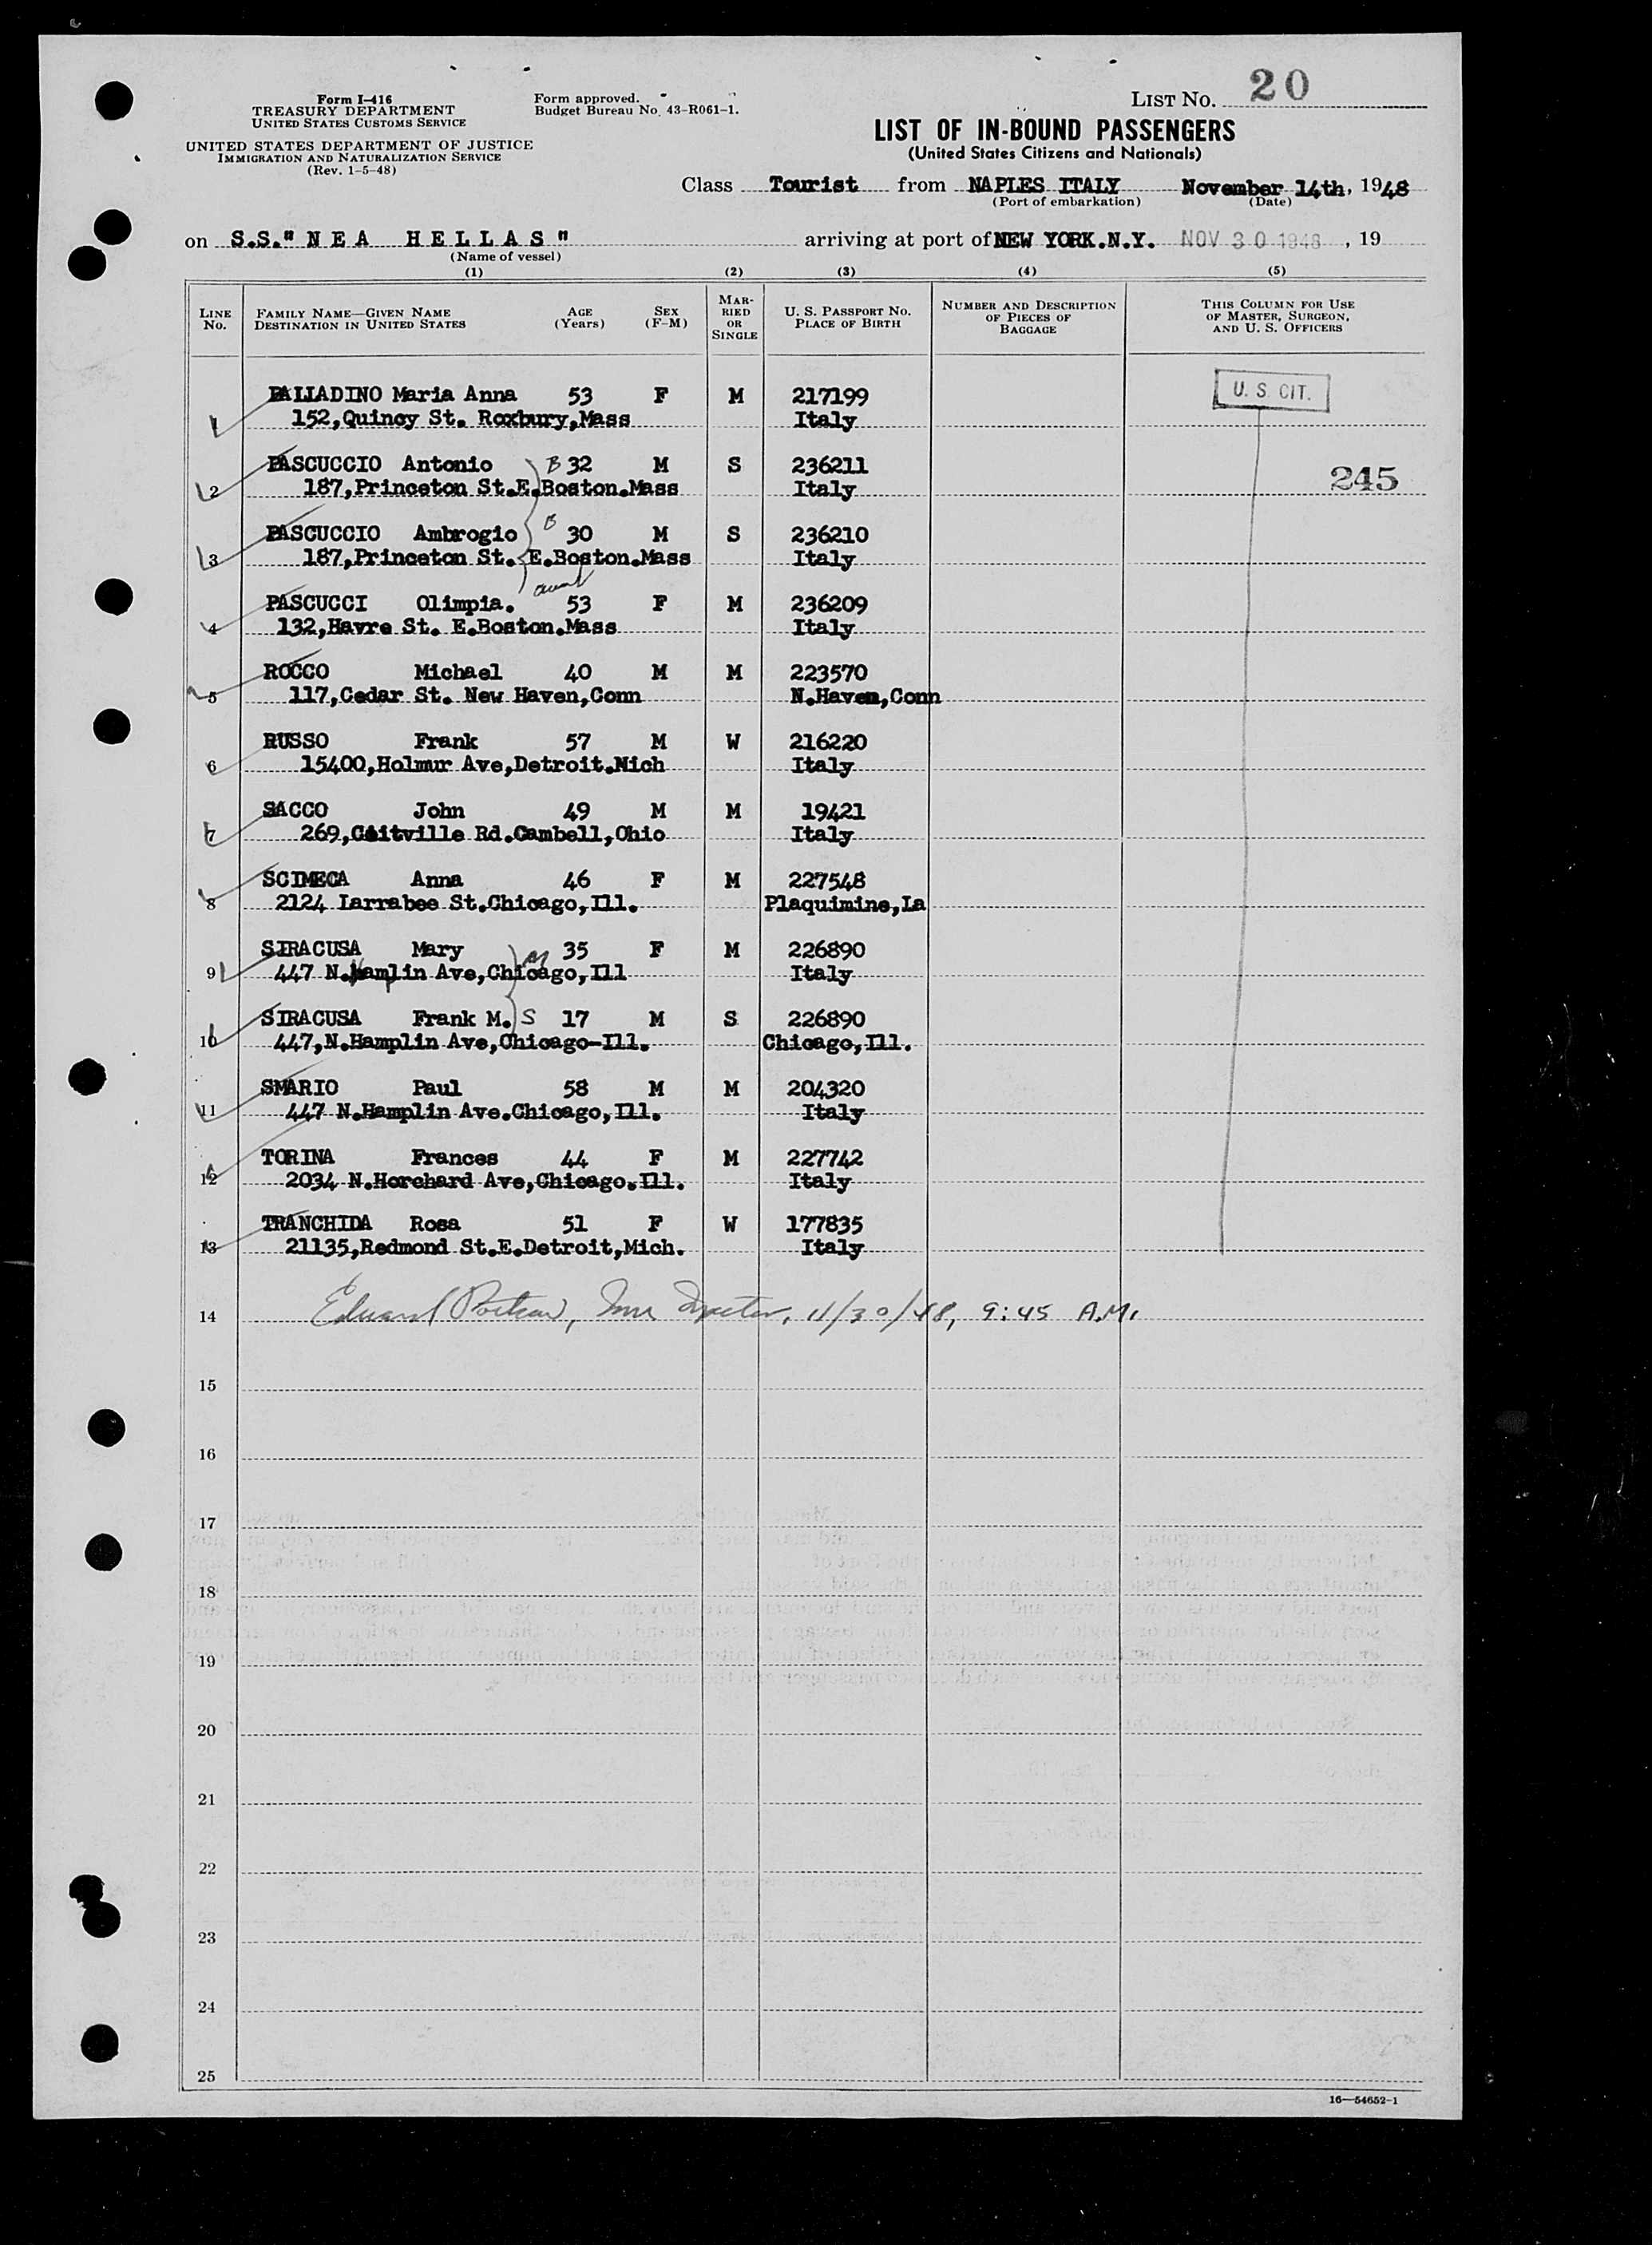 Form I-416
TREASURY DEPARTMENT
UNITED STATES CUSTOMS SERVICE
UNITED STATES DEPARTMENT OF JUSTICE
IMMIGRATION AND NATURALIZATION SERVICE
(Rev. 1-5-48)
Form approved.
Budget Bureau No. 43-R061-1.
LIST NO. 20
LIST OF IN-BOUND PASSENGERS
(United States Citizens and Nationals)
Class Tourist from NAPLES ITALY November 14th, 1948
(Port of embarkation) (Date)
on S.S." N E A H E L L A S " arriving at port of NEW YORK.N.Y. NOV 30 1948, 19
(Name of vessel)
(1) (2) (3) (4) (5)
LINE No. FAMILY NAME—GIVEN NAME DESTINATION IN UNITED STATES AGE (Years) SEX (F-M) MARRIED OR SINGLE U. S. PASSPORT NO. PLACE OF BIRTH NUMBER AND DESCRIPTION OF PIECES OF BAGGAGE THIS COLUMN FOR USE OF MASTER, SURGEON, AND U. S. OFFICERS
PALLADINO Maria Anna 53 F M 217199 U. S. CIT.
1 152,Quincy St. Roxbury,Mass Italy
PASCUCCIO Antonio B 32 M S 236211
2 187,Princeton St.E.Boston.Mass Italy 245
PASCUCCIO Ambrogio B 30 M S 236210
3 187,Princeton St. E.Boston.Mass Italy
aunt
PASCUCCI Olimpia. 53 F M 236209
4 132,Havre St. E.Boston.Mass Italy
ROCCO Michael 40 M M 223570
5 117,Cedar St. New Haven,Conn N.Haven,Conn
RUSSO Frank 57 M W 216220
6 15400,Holmur Ave,Detroit.Mich Italy
SACCO John 49 M M 19421
7 269,Coitville Rd.Cambell,Ohio Italy
SCIMECA Anna 46 F M 227548
8 2124 Larrabee St.Chicago,Ill. Plaquimine,La
SIRACUSA Mary M 35 F M 226890
9 447 N.Hamplin Ave,Chicago,Ill Italy
SIRACUSA Frank M. S 17 M S 226890
10 447,N.Hamplin Ave,Chicago-Ill. Chicago,Ill.
SMARIO Paul 58 M M 204320
11 447 N.Hamplin Ave.Chicago,Ill. Italy
TORINA Frances 44 F M 227742
12 2034 N.Horchard Ave,Chicago.Ill. Italy
TRANCHIDA Rosa 51 F W 177835
13 21135,Redmond St.E.Detroit,Mich. Italy
14 Edward 11/30/48, 9:45 A.M.
15
16
17
18
19
20
21
22
23
24
25
16—54652-1